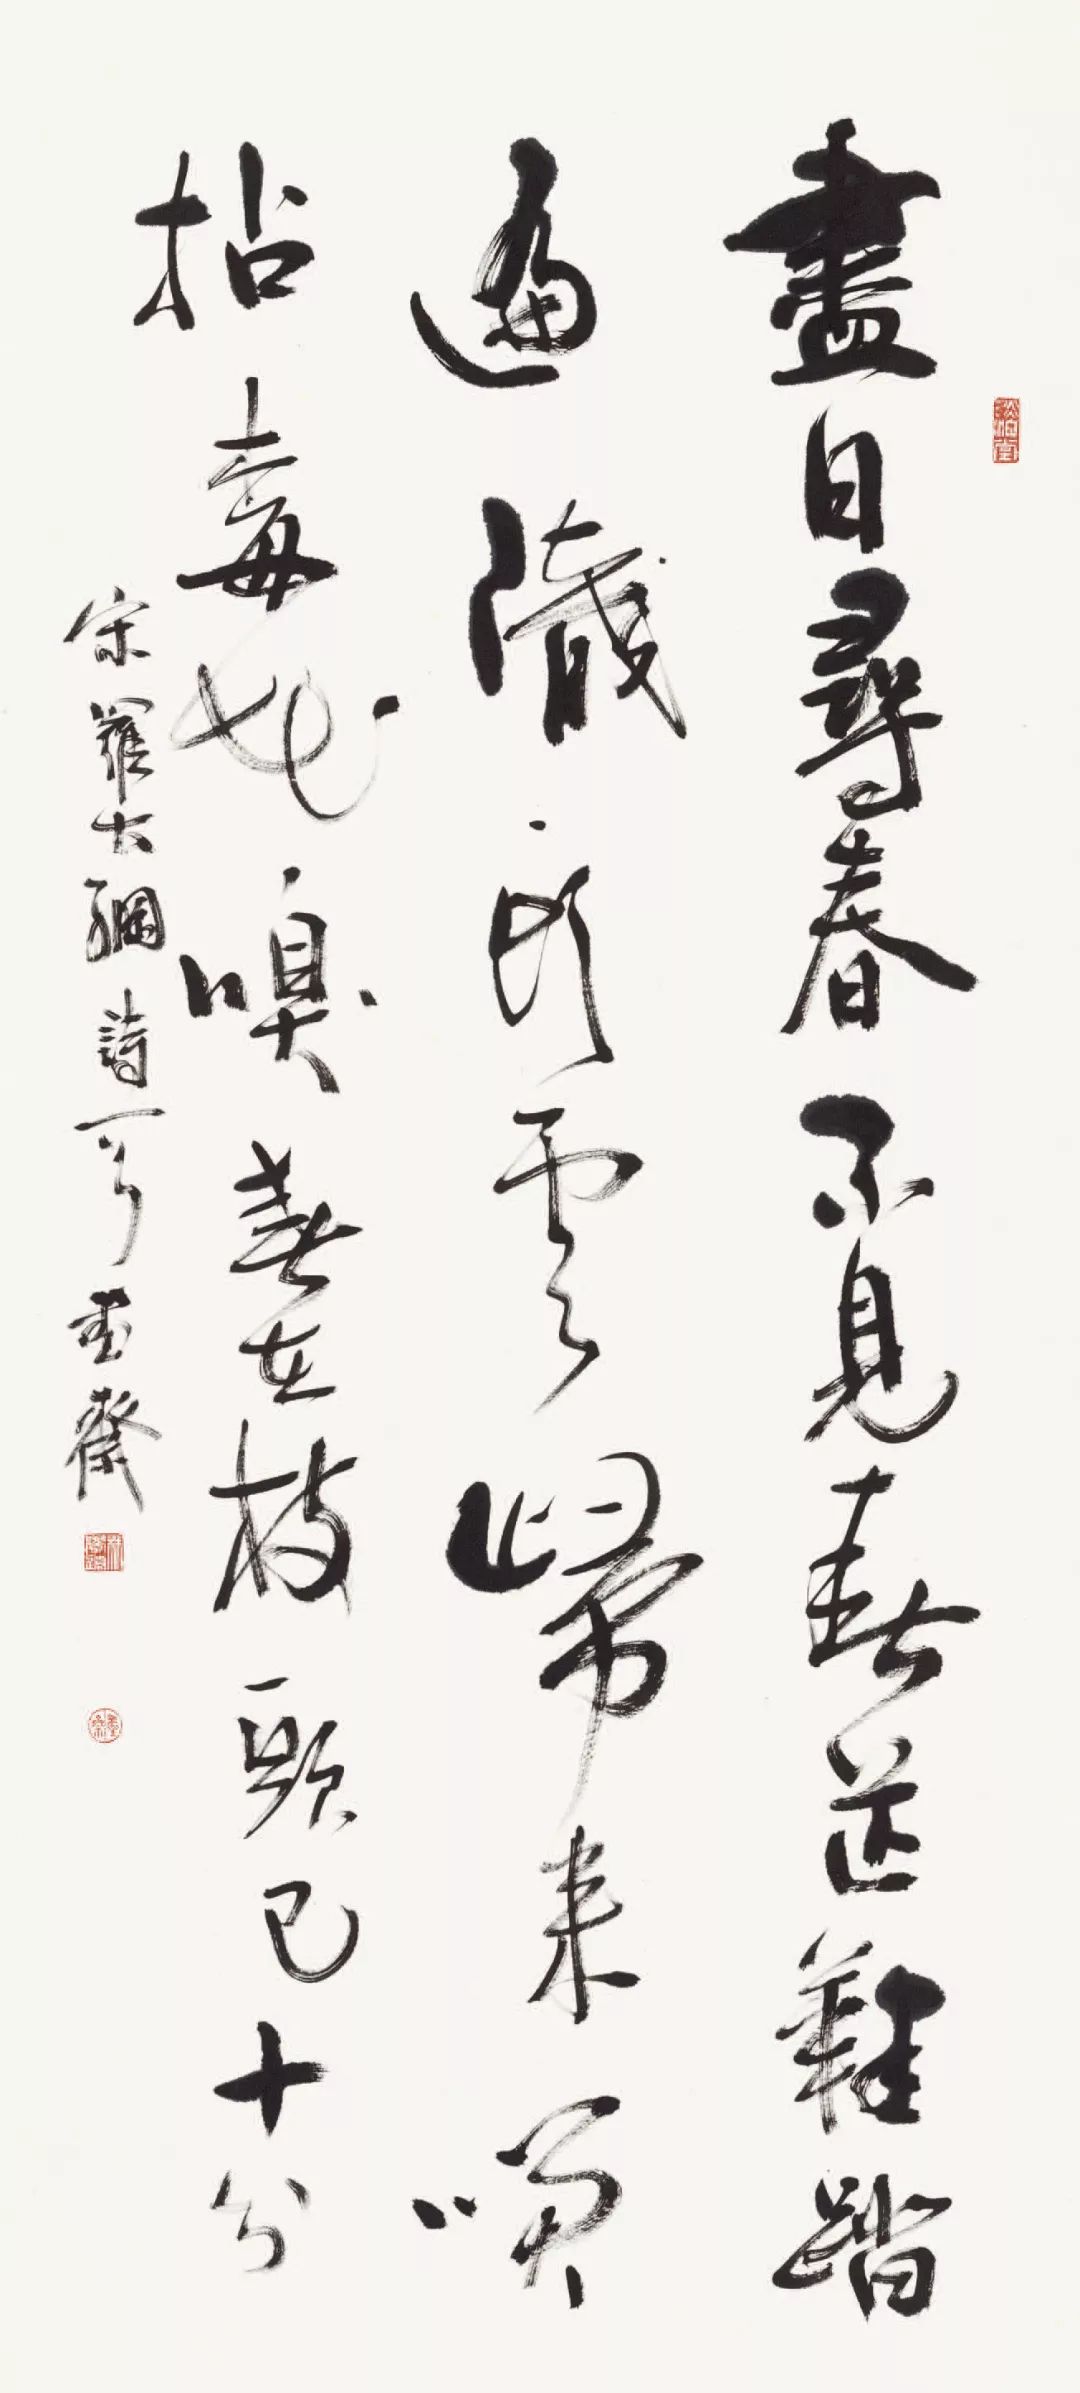 淡泊堂
盡日尋春不見春芒鞋踏
遍隴頭雲歸來笑
拈梅花嗅春在枝頭已十分
宋羅大綱詩一首 齋